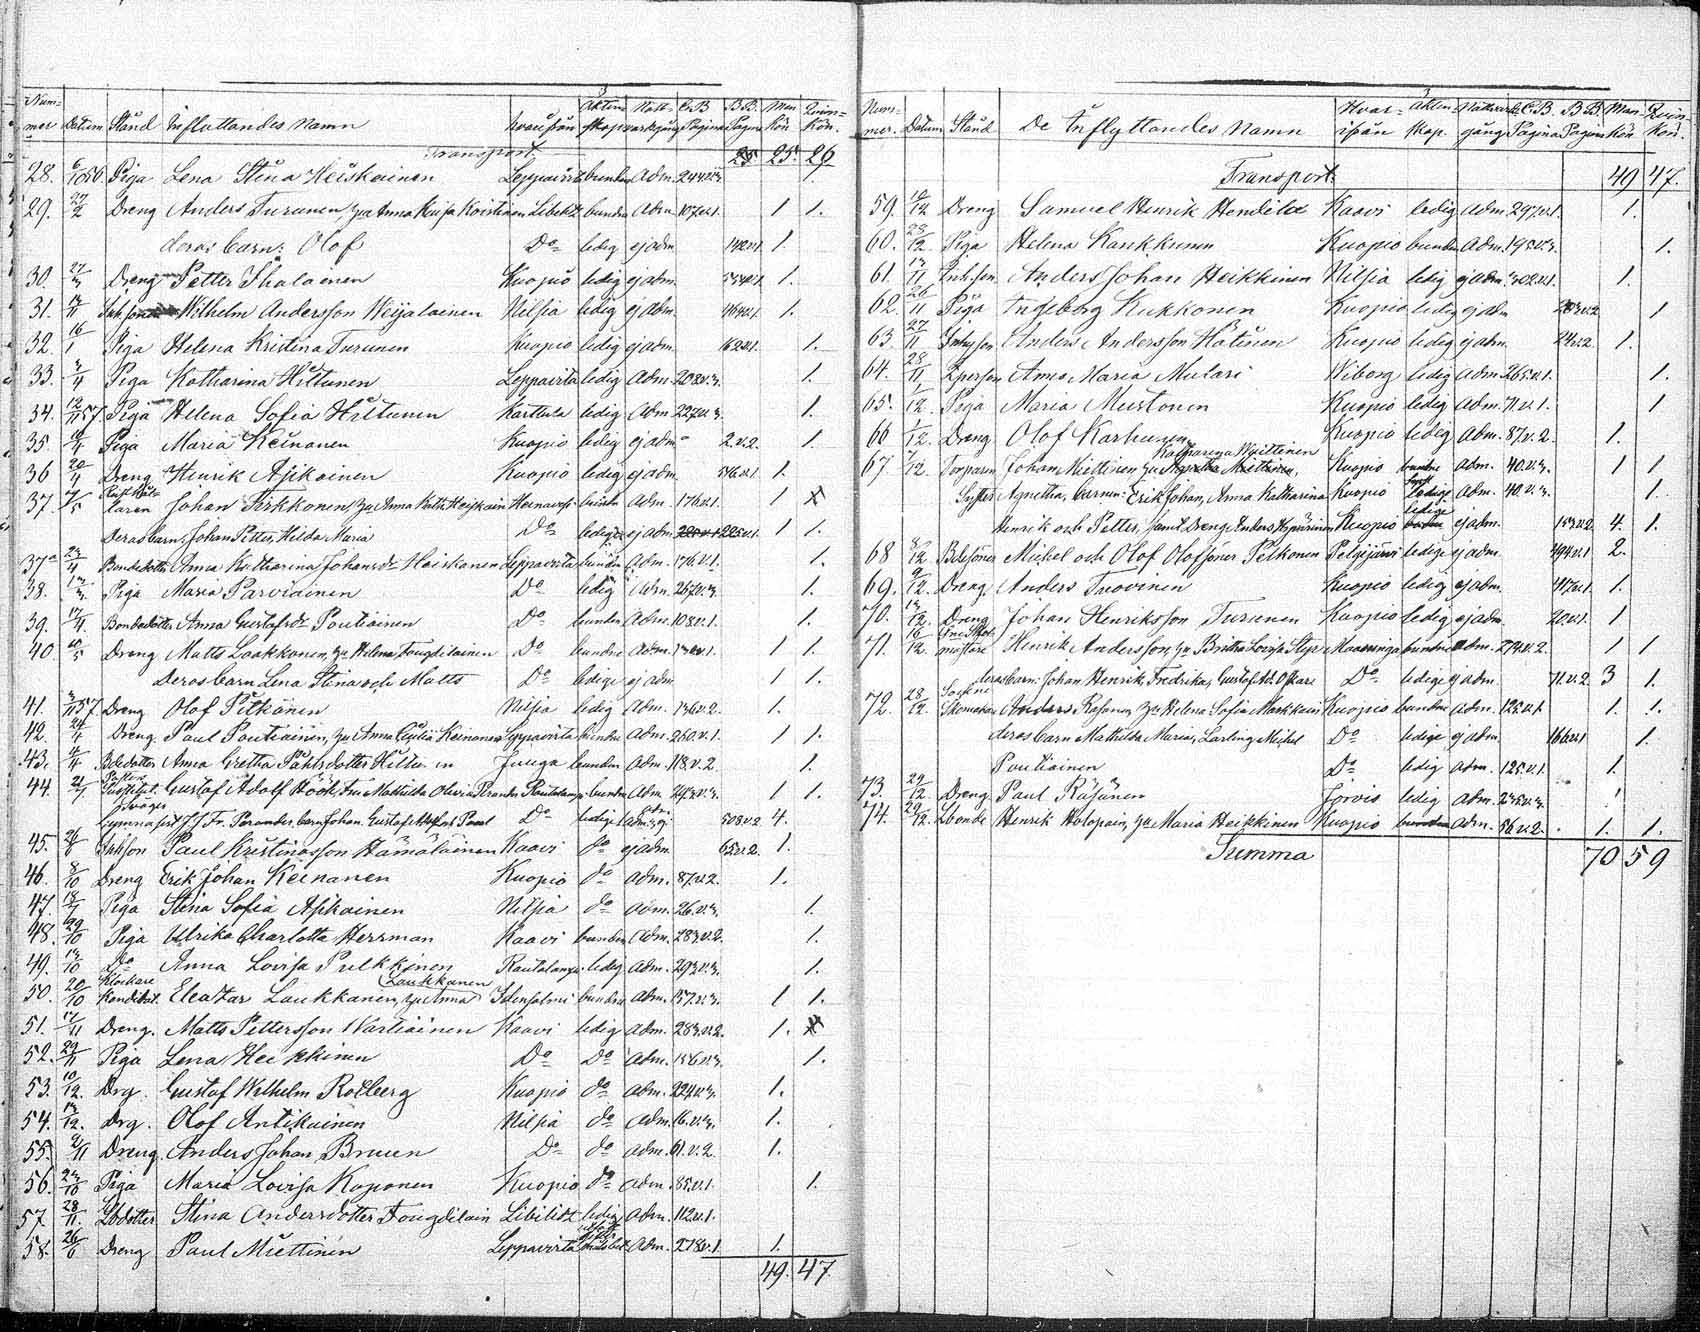 3
Num- mer Datum Stånd Inflyttandes Namn hvarifrån Äkten- skap Natt- vardsgång C.B. Pagina B.B. Pagina Man Kön. Qvin- Kön.
Transport 25 25. 26
28. 6/10 56 Piga Lena Stina Heiskainen Leppävirta bunden Adm. 244.v.3.
29. 27/2 Dreng Anders Turunen, hu Anna Kaisa Koistinen Libelitz bundne Adm. 107.v.1. 1 1.
deras barn: Olof Do ledig ej adm. 142.v.1. 1.
30. 27/3 Dreng Petter Ihalainen Kuopio ledig ej adm. 554.v.1. 1.
31. 13/11 Inh.son Wilhelm Andersson Weijalainen Nilsia ledig ej adm. 464.v.1. 1.
32. 16/1 Piga Helena Kristina Turunen Kuopio ledig ej adm. 162.v.1. 1.
33. 3/4 Piga Katharina Hiltunen Leppavirta ledig Adm. 202.v.3. 1.
34. 12/11 57. Piga Helena Sofia Hiltunen Karttula ledig Adm. 227.v.3. 1.
35. 10/4 Piga Maria Keinanen Kuopio ledig ej adm. 2.v.2. 1.
36 20/4 Dreng Henrik Asikainen Kuopio ledig ej adm. 516.v.1. 1.
37. 7/5 Johan Sirkkonen, hu Anna Kath. Heiskain Heinavesi bundn Adm. 176.v.1. 1
Deras barn, Johan Petter, Hilda Maria Do ledige ej adm. 225.v.1. 1 1.
37a 23/4 Bondedotter Anna Katharina Johansdr Heiskanen Leppävirta bunden Adm. 176.v.1. 1.
38. 13/3. Piga Maria Parviainen Do ledig Adm. 257.v.3. 1.
39. 17/4. Bondedotter Anna Gustafsdr Poutiainen Do bunden Adm. 108.v.1. 1.
40. 10/5 Dreng Matts Laakkonen, hu Helena Fougdilainen Do bundne Adm. 1 1
Deras barn Lena Stina och Matts Do ledige ej adm 1 1.
41. 3/11 57 Dreng Olof Pitkänen Nilsia ledig Adm. 136.v.2. 1.
42. 24/4 Dreng Paul Poutiainen, hu Anna Cecilia Keinanen Leppävirta bundne Adm. 260.v.1. 1 1.
43. 4/4 Bdedotter Anna Gretha Påhlsdotter Hiltu en Juuga bunden Adm. 118.v.2. 1.
44. Gustaf Adolf Höök, Fru Mathilda Olivia Perander Rautalampi bundne Adm. 1 1.
Svåger Gymnasist J. Fr. Perander, barn Johan Gustaf Do ledige 508.v.2 4.
45. 26/8 Inhson Paul Kristinasson Hämäläinen Kaavi do ej adm. 65.v.2. 1.
46. 8/10 Dreng Erik Johan Keinanen Kuopio do Adm. 87.v.2. 1.
47. Piga Stina Sofia Asikainen Nilsia do adm. 26.v.3. 1.
48. 29/10 Piga Ulrika Charlotta Herrman Kaavi bunden Adm. 283.v.2. 1.
49. 13/10 Do Anna Lovisa Pulkkinen Rautalampi ledig Adm. 293.v.3. 1.
50. 20/10 Klockare Kandidat. Eleazar Laukkanen, hu Anna Laukkanen Idensalmi bundne Adm. 157.v.3. 1 1.
51. 17/11 Dreng. Matts Pettersson Wartiainen Kaavi ledig Adm. 283.v.2. 1.
52. 29/11 Piga Lena Heikkinen Do Do Adm. 156.v.3. 1.
53. 10/12. Drg. Gustaf Wilhelm Rotberg Kuopio do Adm. 224.v.3. 1.
54. 13/12. Drg. Olof Antikainen Nilsia do Adm. 16.v.3. 1.
55. 2/11 Dreng. Anders Johan Bruun Do do adm. 61.v.2. 1.
56. 23/10 Piga Maria Lovisa Koponen Kuopio do adm. 85.v.1. 1.
57 28/11. Lbdotter Stina Andersdotter Fougdilain Libilitz ledig Adm. 112.v.1.
58. 26/6 Dreng Paul Miettinen Leppavirta Adm. 278.v.1. 1.
49. 47.
3
Num- mer. Datum Stånd De Inflyttandes Namn Hvar- ifrån Akten- skap. Nattvards- gång C.B. Pagina B.B. Pagina Man Kön Qvin- Kön.
Transport. 49 47.
59. 10/12 Dreng Samuel Henrik Hendilä Kaavi ledig Adm. 297.v.1. 1.
60. 23/12. Piga Helena Kaukkunen Kuopio bunden Adm. 195.v.3. 1.
61. 13/11 Inh.son Anders Johan Heikkinen Nilsia ledig ej adm. 302.v.1. 1.
62. 26/11 Piga Ingeborg Kukkonen Kuopio ledig ej adm 1
63. 27/11 Inhysson Anders Andersson Hätinen Kuopio ledig ej adm. 24.v.2. 1.
64. 28/11 Anna Maria Mulari Wiborg ledig Adm. 265.v.1. 1.
65. 1/12. Piga Maria Mustonen Kuopio ledig Adm. 71.v.1. 1
66 1/12. Dreng Olof Karhunen Kuopio ledig Adm. 87.v.2. 1.
67. 7/12. Torparen Johan Miettinen, hu Katharina Miettinen Kuopio bundne adm. 40.v.3. 1 1
Syster Agnetha, barnen: Erik Johan, Anna Katharina Kuopio ledige Adm. 40.v.3. 1.
Henrik och Petter, samt Dreng Anders Hyvärinen Kuopio ledige ej adm. 153.v.2. 4. 1.
68 8/12. Bdesöner Michel och Olof Olofsöner Pelkonen Pelgijärvi ledige ej adm. 494.v.1 2.
69. 9/12. Dreng. Anders Tuovinen Kuopio ledig ej adm. 417.v.1. 1.
70. 13/12. Dreng Johan Henriksson Turunen Kuopio ledig ej adm. 20.v.1. 1
71. 16/12 Henrik Andersson, hu Britha Lovisa Maaninga bundne Adm. 274.v.2. 1 1
deras barn: Johan Henrik, Fredrika, Gustaf Ad. Oskar Do ledige ej adm. 71.v.2. 3 1.
72. 28/12. Socken Skomakar Anders Räsänen, hu Helena Sofia Markkain Kuopio bundne adm. 125.v.1. 1. 1.
deras barn Mathilda Maria, Lärling Michel Do ledige ej adm. 166.v.1 1.
Poutiainen Do ledig adm. 125.v.1. 1.
73. 29/12. Dreng. Paul Räsänen Jorois ledig adm. 235.v.3. 1
74. 29/12. Lbonde Henrik Holopain, hu Maria Heikkinen Kuopio bundne adm. 56.v.2. 1. 1.
Summa 70 59